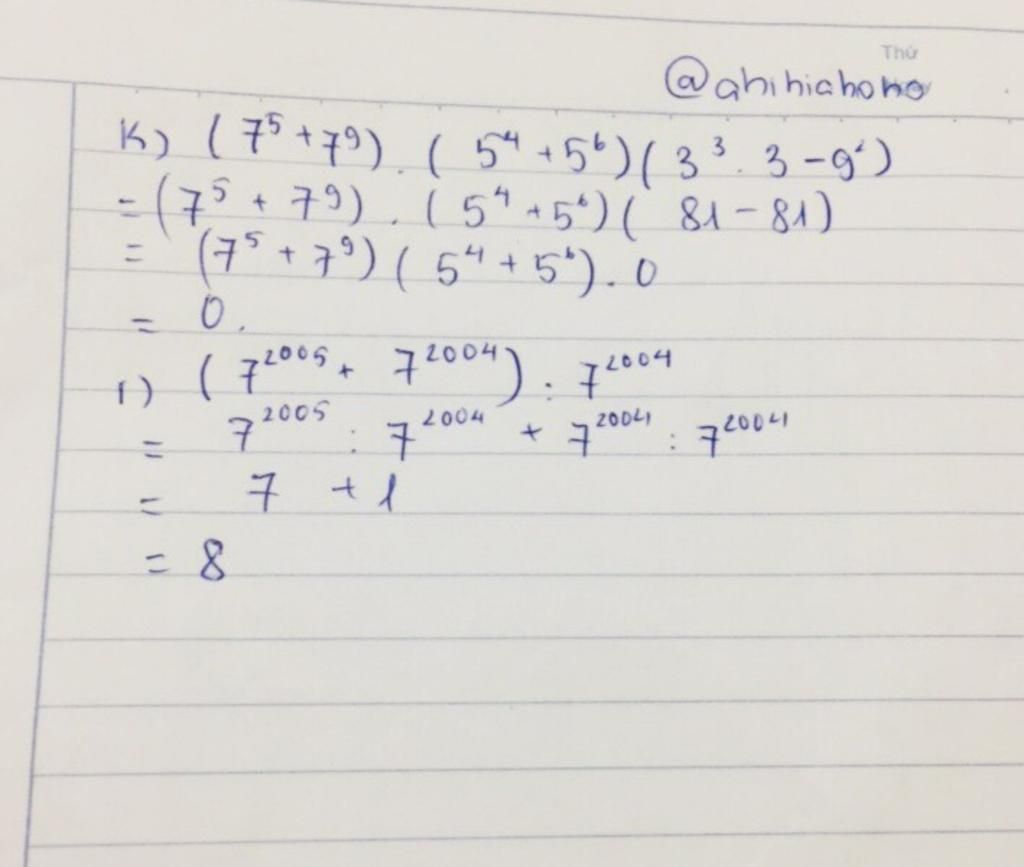 Thứ
@ahihiahoho
K) (7⁵ + 7⁹) . (5⁴ + 5⁶)(3³ . 3 - 9²)
= (7⁵ + 7⁹) . (5⁴ + 5⁶)(81 - 81)
= (7⁵ + 7⁹)(5⁴ + 5⁶) . 0
= 0.
1) (7²⁰⁰⁵ + 7²⁰⁰⁴) : 7²⁰⁰⁴
= 7²⁰⁰⁵ : 7²⁰⁰⁴ + 7²⁰⁰⁴ : 7²⁰⁰⁴
= 7 + 1
= 8